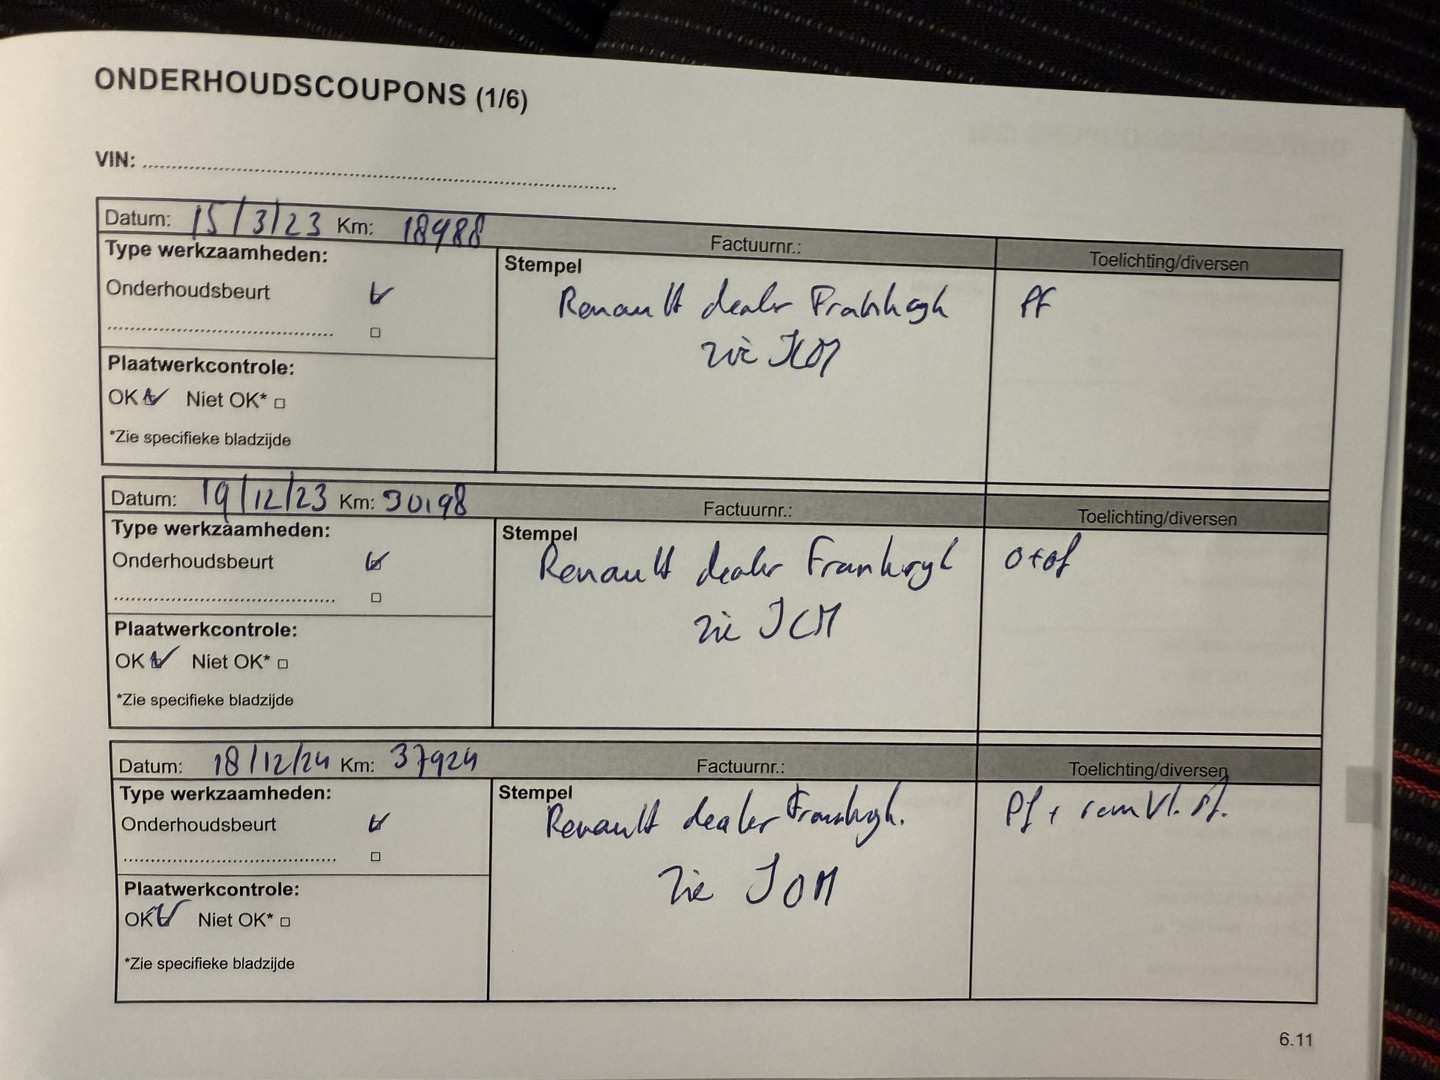 ONDERHOUDSCOUPONS (1/6)
VIN:
Datum: 15/3/23 Km: 18988
Factuurnr.:
Toelichting/diversen
Type werkzaamheden:
Stempel
Onderhoudsbeurt
Renault dealer
zie
Pf
Plaatwerkcontrole:
OK Niet OK*
*Zie specifieke bladzijde
Datum: 19/12/23 Km: 30198
Factuurnr.:
Toelichting/diversen
Type werkzaamheden:
Stempel
Onderhoudsbeurt
Renault dealer Frankryk
zie ICM
o+of
Plaatwerkcontrole:
OK Niet OK*
*Zie specifieke bladzijde
Datum: 18/12/24 Km: 37924
Factuurnr.:
Toelichting/diversen
Type werkzaamheden:
Stempel
Onderhoudsbeurt
Renault dealer
zie
Pf + rem vl. st.
Plaatwerkcontrole:
OK Niet OK*
*Zie specifieke bladzijde
6.11